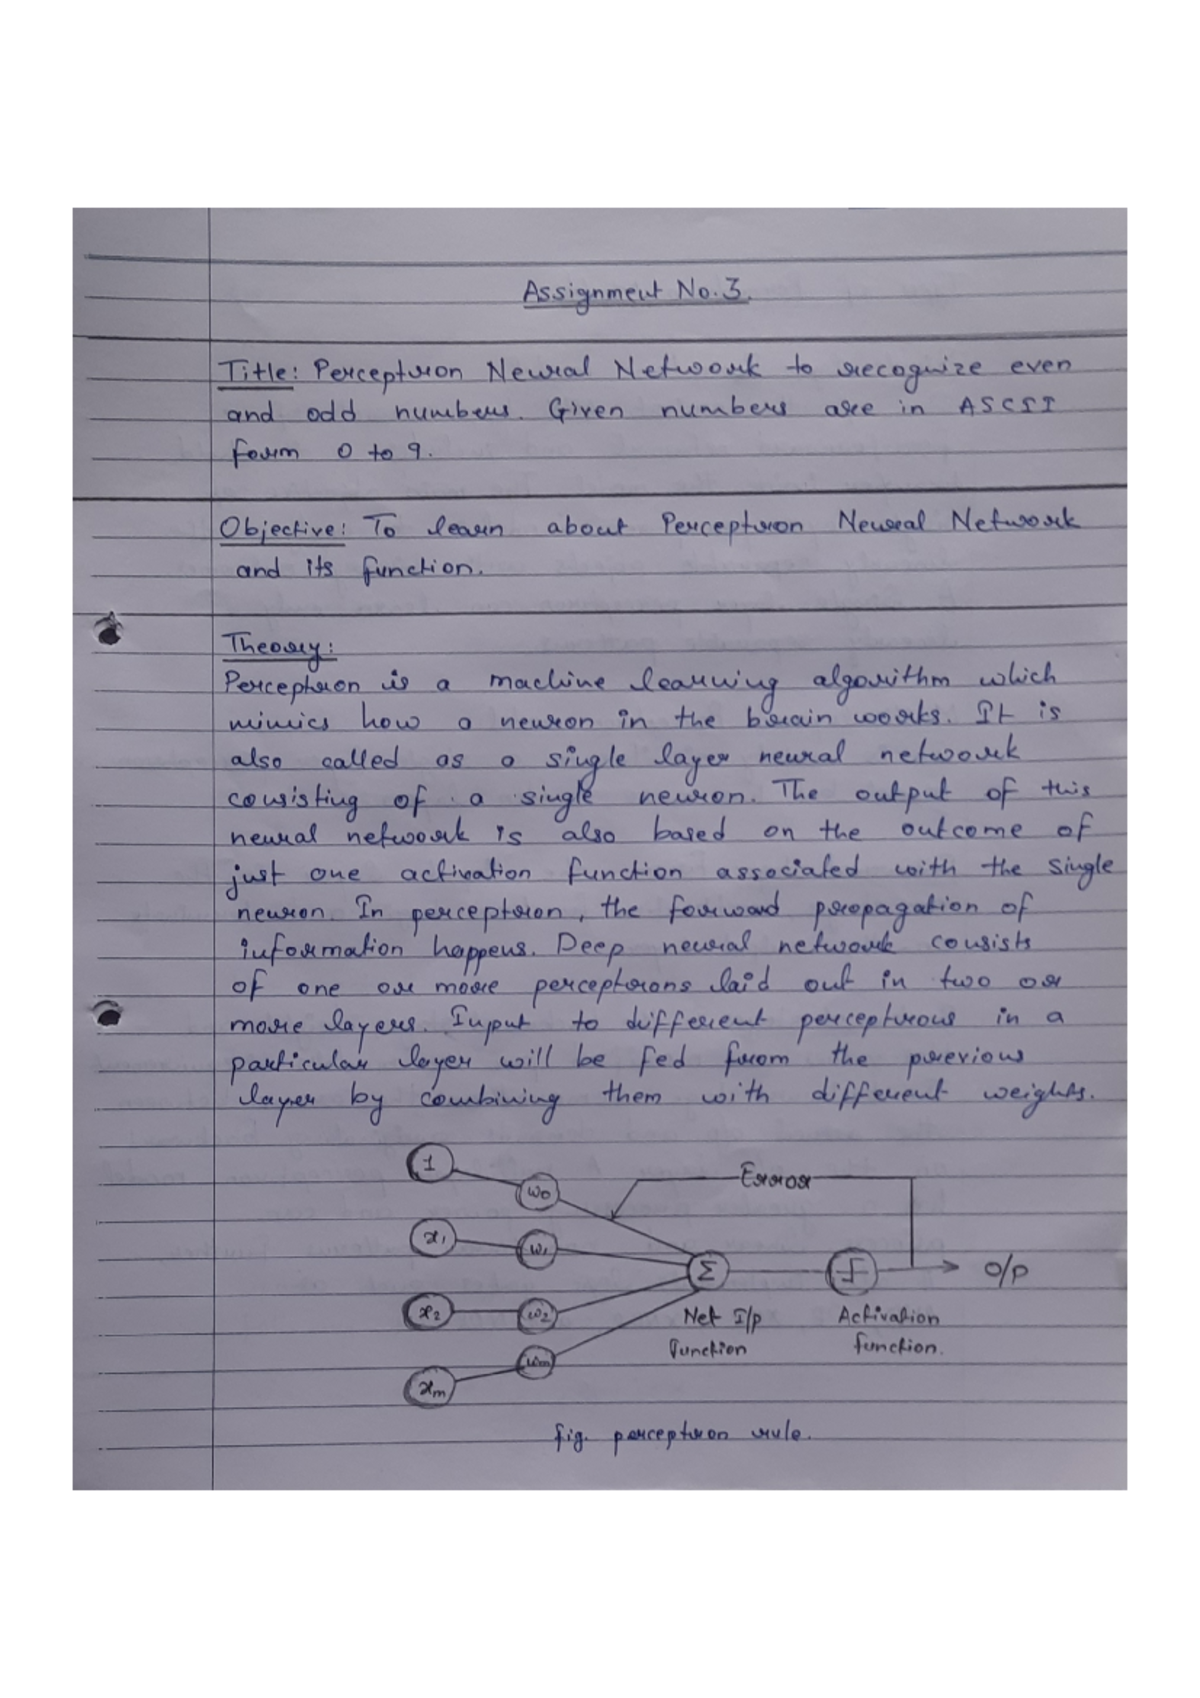 Assignment No. 3.
Title: Perceptron Neural Network to recognize even
and odd numbers. Given numbers are in ASCII
form 0 to 9.
Objective: To learn about Perceptron Neural Network
and its function.
Theory:
Perceptron is a machine learning algorithm which
mimics how a neuron in the brain works. It is
also called as a single layer neural network
consisting of a single neuron. The output of this
neural network is also based on the outcome of
just one activation function associated with the single
neuron. In perceptron, the forward propagation of
information happens. Deep neural network consists
of one or more perceptrons laid out in two or
more layers. Input to different perceptrons in a
particular layer will be fed from the previous
layer by combining them with different weights.
1
w0
Error
x1
w1
Σ
O/P
x2
w2
Net I/p
Function
Activation
function.
wm
xm
fig. perceptron rule.